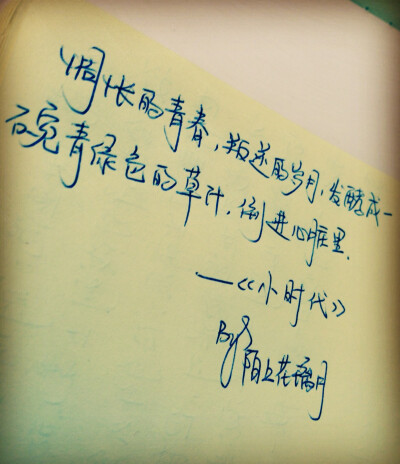 惆怅的青春，叛逆的岁月，发酵成一
碗青绿色的草汁，倒进心脏里.
——《小时代》
By
陌上花漓月